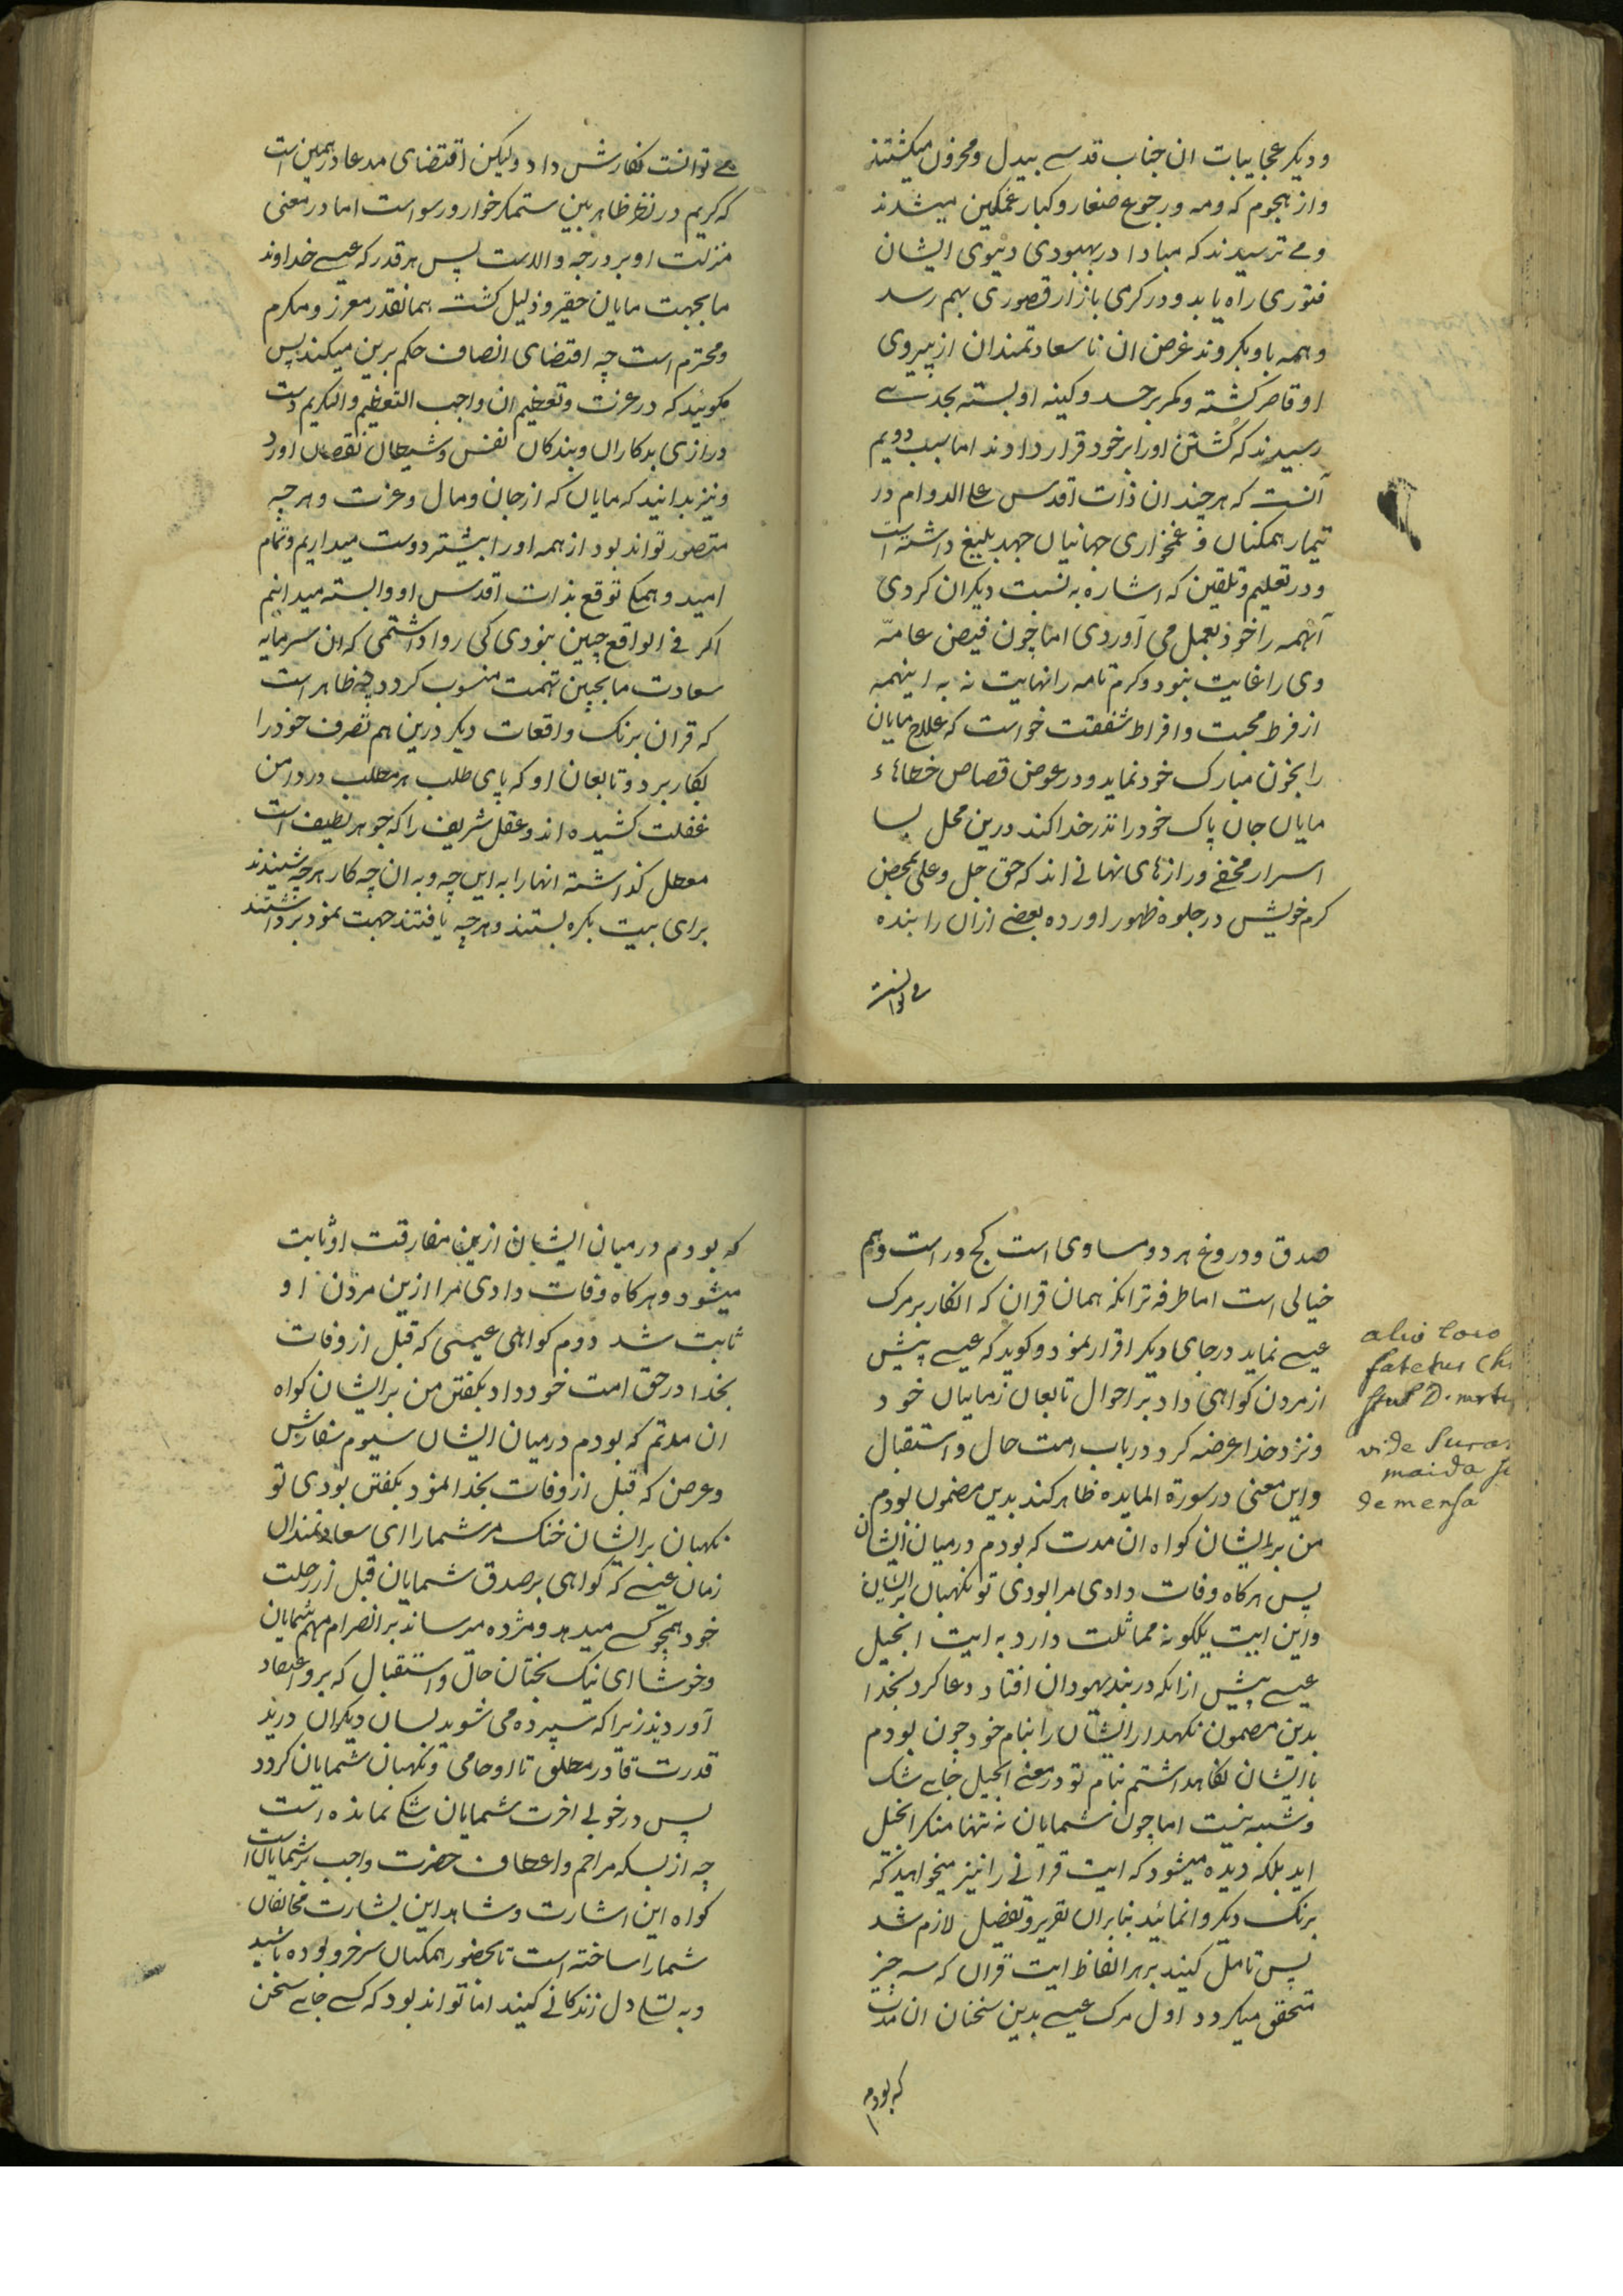 ودیکر عجایبات ان جناب قدسے بیدل ومحزون میکشتند
واز هجوم که ومه ورجوع صغار وکبار غمکین میشدند
ومے ترسیدند که مبادا در بهبودی دنیوی ایشان
فتوری راه یابد ودر کرمی بازار قصوری بهم رسد
وهمه باو بکروند غرض ان ناسعادتمندان از پیروی
او قاصر کشته وکمر بر حسد وکینه او بسته بحدے
رسیدند که کُشتن اورا بر خود قرار دادند اما سبب دویم
آنست که هر چند ان ذات اقدس علے الدوام در
تیمار همکنان و غمخواری جهانیان جهد بلیغ داشته است
ودر تعلیم وتلقین که اشاره به نسبت دیکران کردی
آنهمه را خود بعمل می آوردی اما چون فیض عامّه
وی را غایت نبود وکرم تامه را نهایت نه به اینهمه
از فرط محبت وافراط شفقت خواست که علاج مایان
را بخون مبارک خود نماید ودر عوض قصاص خطاهاء
مایان جان پاک خود را نذر خدا کند درین محل بسا
اسرار مخفے ورازهای نهانے اند که حق جل وعلی بمحض
کرم خویش در جلوه ظهور اورده بعضے ازان را بنده
مے توانست
مے توانست نکارش داد ولیکن اقتضای مدعا درهمین است
که کریم در نظر ظاهر بین ستمکر خوار ورسواست اما در معنی
منزلت او بر درجه والاست پس هر قدر که عیسے خداوند
ما بجهت مایان حقیر وذلیل کشت همانقدر معزز ومکرم
ومحترم است چه اقتضای انصاف حکم برین میکند پس
مکوئید که در عزت وتعظیم ان واجب التعظیم والتکریم دست
درازی بدکاران وبندکان نفس وشیطان نقصان اورد
ونیز بدانید که مایان که از جان ومال وعزت وهر چه
متصور تواند بود از همه اورا بیشتر دوست میداریم وتمام
امید وهمکی توقع بذات اقدس او وابسته میدانیم
اکر فے الواقع چنین نبودی کی روا داشتمی که ان سرمایه
سعادت ما بچنین تهمت منسوب کردد چه ظاهر است
که قران برنک واقعات دیکر درین هم تصرف خود را
بکار برد وتابعان او که پای طلب هر مطلب در دامن
غفلت کشیده اند وعقل شریف را که جوهر لطیف است
معطل کذاشته انها را به این چه وبه ان چه کار هر چه شنیدند
برای بیت بکره بستند وهر چه یافتند جهت نمود برداشتند
صدق ودروغ هر دو مساوی است کج وراست وهم
خیالی است اما طرفه تر انکه همان قران که انکار بر مرک
عیسے نماید در جای دیکر اقرار نمود وکوید که عیسے پیش
از مردن کواهی داد بر احوال تابعان زمانیان خود
ونزد خدا عرضه کرد در باب امت حال واستقبال
واین معنی در سورة المایده ظاهر کند بدین مضمون بودم
من بر ایشان کواه ان مدت که بودم در میان ایشان
پس هر کاه وفات دادی مرا بودی تو نکهبان بر ایشان
واین ایت یکگونه مماثلت دارد به ایت انجیل
عیسے پیش از انکه در بند یهودان افتاد دعا کرد بخدا
بدین مضمون نکهدار ایشان را بنام خود چون بودم
با ایشان نکاهداشتم بنام تو در معنے انجیل جاے شک
وشبه نیست اما چون شمایان نه تنها منکر انجیل
اید بلکه دیده میشود که ایت قرانے را نیز میخواهید که
برنک دیکر وانمائید بنابران تقریر وتفصیل لازم شد
پس تامل کنید بر هر الفاظ ایت قران که سه چیز
متحقق میکردد اول مرک عیسے بدین سخنان ان مدت
که بودم
alio loco
fatetur Ch
vide Sura
maida
de mensa
که بودم در میان ایشان ازین مفارقت او ثابت
میشود وهر کاه وفات دادی مرا ازین مردن او
ثابت شد دوم کواهی عیسی که قبل از وفات
بخدا در حق امت خود داد بکفتن من بر ایشان کواه
ان مدتم که بودم در میان ایشان سیوم سفارش
وعرض که قبل از وفات بخدا نمود بکفتن بودی تو
نکهبان بر ایشان خنک مر شمارا ای سعادتمندان
زمان عیسے که کواهی بر صدق شمایان قبل از رحلت
خود همچو کسے میدهد ومژده میرساند بر انصرام مهم شمایان
وخوشا ای نیک بختان حال واستقبال که برو اعتقاد
آوردید زیرا که سپرده می شوید بسان دیکران در ید
قدرت قادر مطلق تا او حامی ونکهبان شمایان کردد
پس در خوبے اخرت شمایان شکے نمانده است
چه از بسکه مراحم واعطاف حضرت واجب بر شمایان است
کواه این اشارت وشاهد این بشارت مخالفان
شمارا ساخته است تا بحضور همکنان سرخرو بوده باشید
وبه تسلے دل زندکانے کنید اما تواند بود که کسے جاے سخن